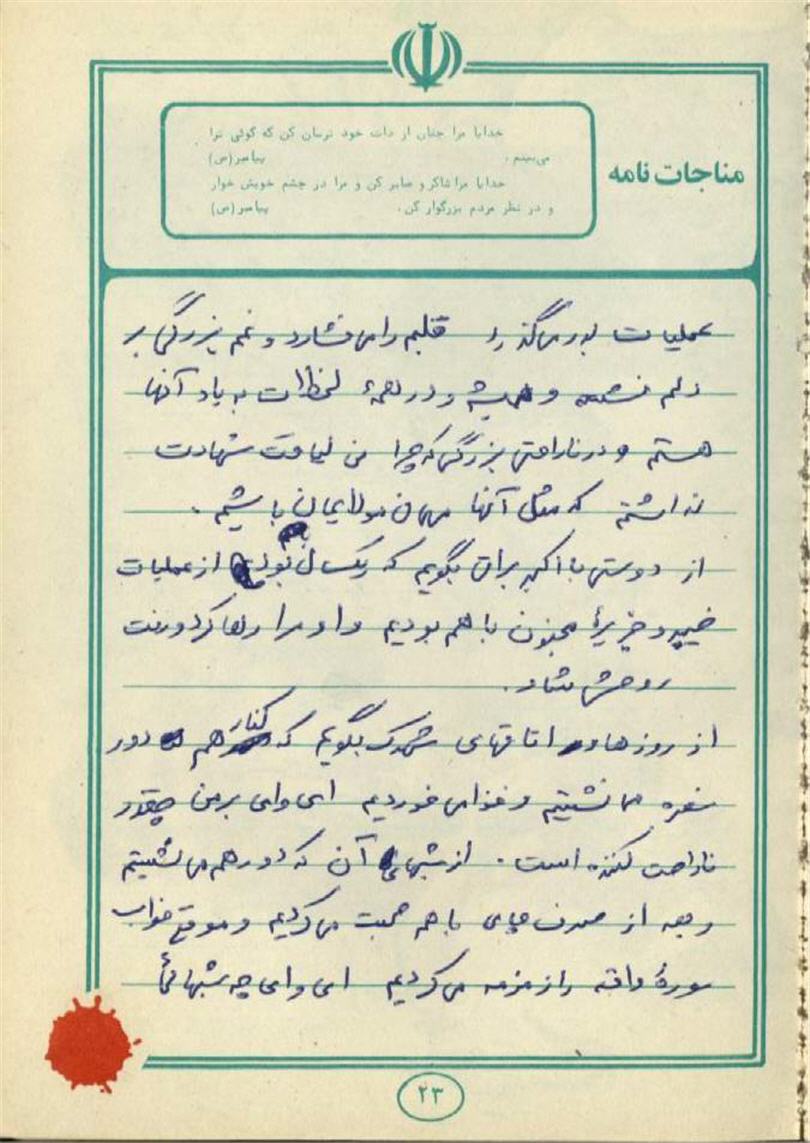 مناجات نامه
خدایا مرا چنان از ذات خود ترسان کن که گوئی ترا
می‌بینم . پیامبر (ص)
خدایا مرا شاکر و صابر کن و مرا در چشم خویش خوار
و در نظر مردم بزرگوار کن . پیامبر (ص)
عملیات بدر می‌گذرد قلبم را می‌فشارد و غم بزرگی بر
دلم نشسته و همیشه و در همهٔ لحظات به یاد آنها
هستم و در ناراحتی بزرگی که چرا من لیاقت شهادت
نداشتم که مثل آنها مهمان مولایمان باشیم .
از دوستی با اکبر برات بگویم که یکسال باهم بودیم از عملیات
خیبر و جزیرهٔ مجنون با هم بودیم و او مرا رها کرد و رفت
روحش شاد .
از روزها و اتاقهای شهرک بگویم که کنار هم دور
سفره می‌نشستیم و غذا می‌خوردیم ای وای بر من چقدر
ناراحت کننده است . از شبهای آن که دور هم می‌نشستیم
و بعد از صرف چای با هم صحبت می‌کردیم و موقع خواب
سورهٔ واقعه را زمزمه می‌کردیم ای وای چه شبهائی
۲۳